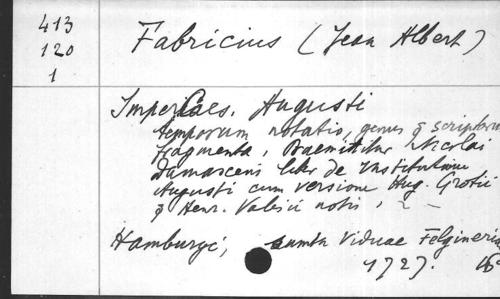 413
120
1
Fabricius (Jean Albert)
Imper. Caes. Augusti
temporum notatio, genus & scriptorum
fragmenta, Praemittitur Nicolai
Damasceni liber de Institutione
Augusti cum versione Hug. Grotii
& Henr. Valesii notis,
Hamburgi, sumtu Viduae Felgineria
1727.